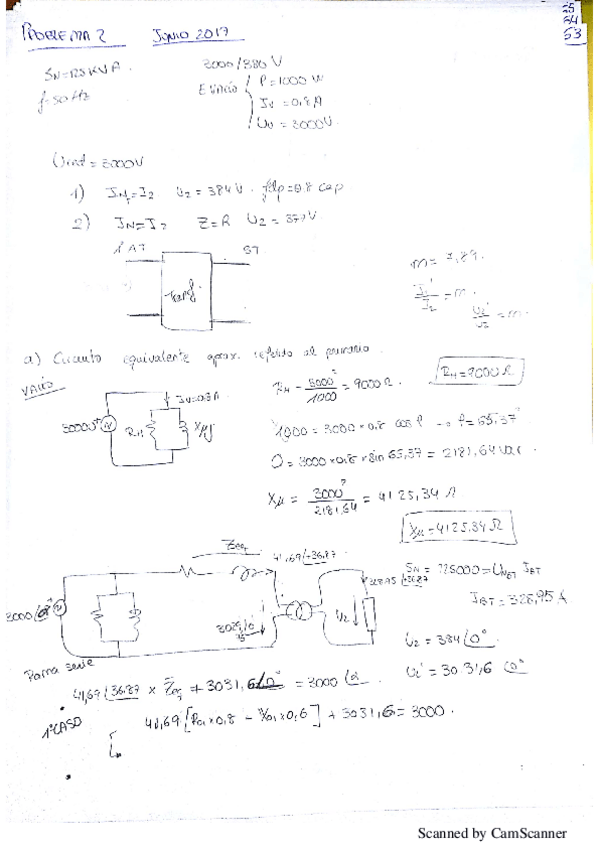 PROBLEMA 2 JUNIO 2017
25
34
53
SN=125KVA 3000/380 V
f=50Hz
Evacio { P=1000 W
Iv=0.8A
Uv=3000V.
= 3000V
1) IN=I2 U2=384V. fdp=0.8 cap
2) IN=I2 Z=R U2=377V.
AT BT
Transf.
m=7,89.
=m.
U2'/U2=m.
a) Circuito equivalente aprox. referido al primario.
VACÍO
Iv=0.8A
3000V RH Xμ
RH=3000²/1000=9000Ω. RH=9000Ω
1000=3000×0,8 cos φ → φ=65,37°
Q=3000×0.8×sin 65,37=2181,64 var.
Xμ=3000²/2181,64=4125,34 Ω
Xμ=4125.34Ω
Zeq 41,69/36.87
328.95/36.87
3000
U2
SN=125000=UNBT IBT
IBT=328,95A
U2=384/0°
U2'=3031,6/0°
Rama serie
41,69/36.87 × Zeq + 3031,6/0° = 3000/α.
1º CASO
41,69[Rcc×0,8 - Xcc×0,6]+3031,6=3000.
Scanned by CamScanner